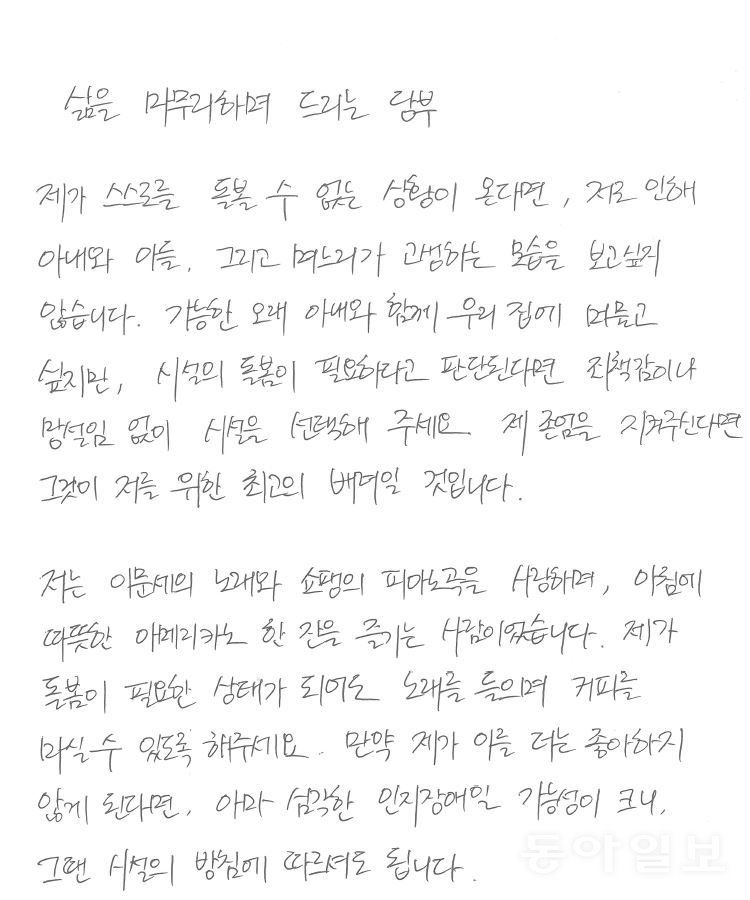 삶을 마무리하며 드리는 당부
제가 스스로를 돌볼 수 없는 상황이 온다면, 저로 인해
아내와 아들, 그리고 며느리가 고생하는 모습을 보고싶지
않습니다. 가능한 오래 아내와 함께 우리 집에 머물고
싶지만, 시설의 돌봄이 필요하다고 판단된다면 죄책감이나
망설임 없이 시설을 선택해 주세요. 제 존엄을 지켜주신다면
그것이 저를 위한 최고의 배려일 것입니다.
저는 이문세의 노래와 쇼팽의 피아노곡을 사랑하며, 아침에
따뜻한 아메리카노 한 잔을 즐기는 사람이었습니다. 제가
돌봄이 필요한 상태가 되어도 노래를 들으며 커피를
마실 수 있도록 해주세요. 만약 제가 이를 더는 좋아하지
않게 된다면, 아마 심각한 인지장애일 가능성이 크니,
그땐 시설의 방침에 따르셔도 됩니다.
동아일보